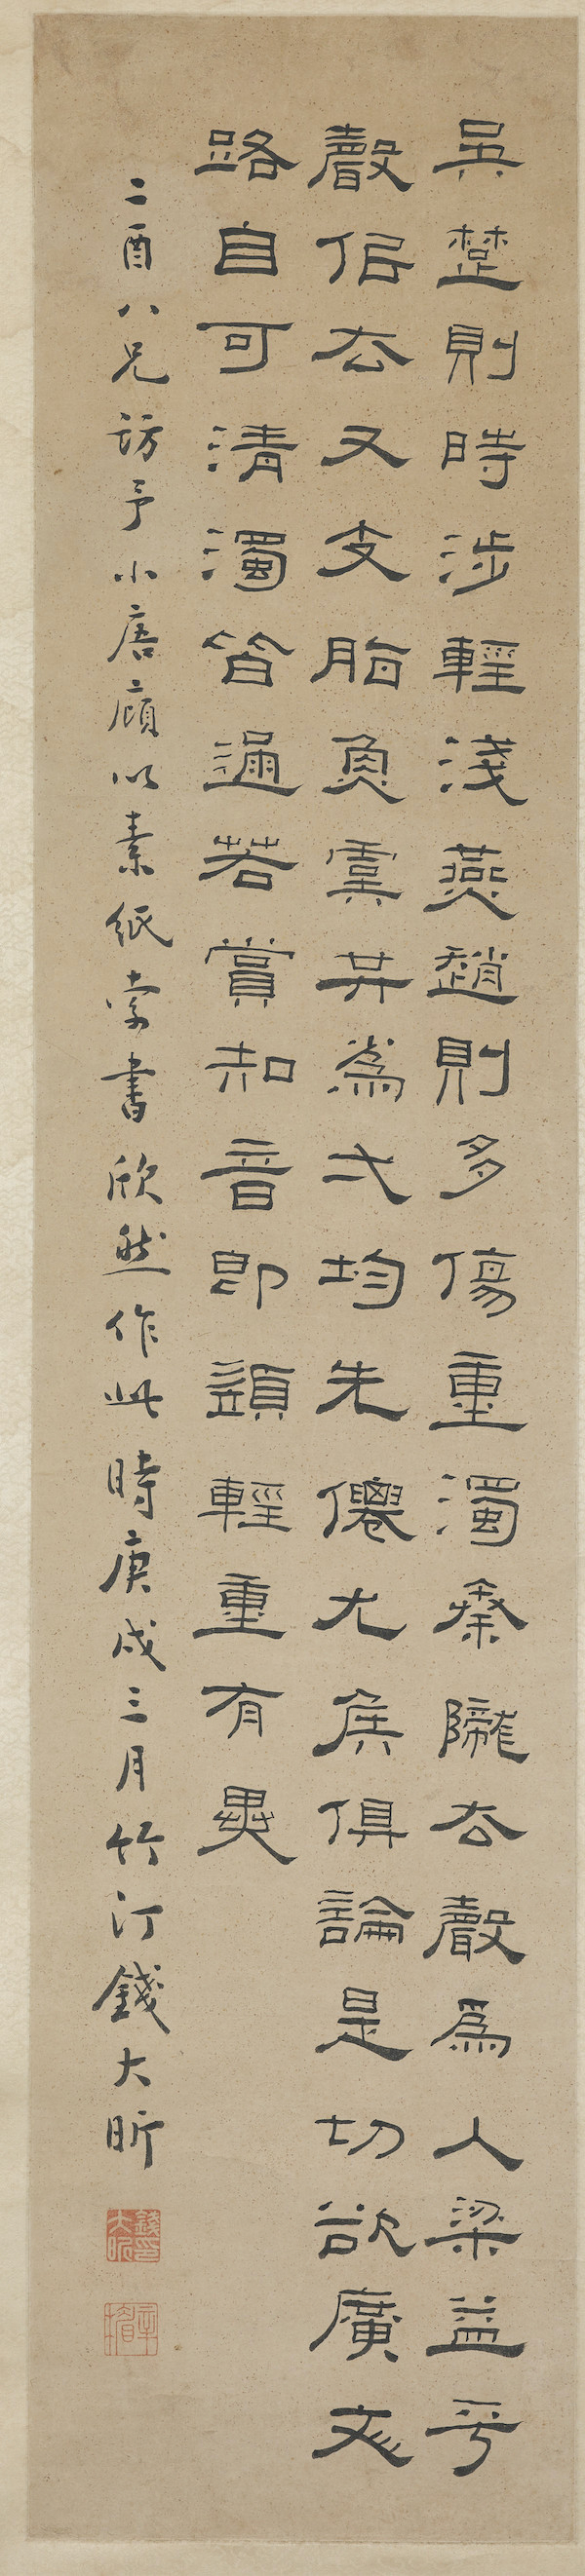 吳楚則時涉輕淺燕趙則多傷重濁秦隴去聲爲入梁益平
聲佀去又支脂魚虞共爲弌均先僊尤侯俱論是切欲廣彣
路自可清濁皆通若賞知音即須輕重有異
二酉八兄訪予小唐廎以素紙索書欣然作此時庚戌三月竹汀錢大昕
錢印大昕
辛楣